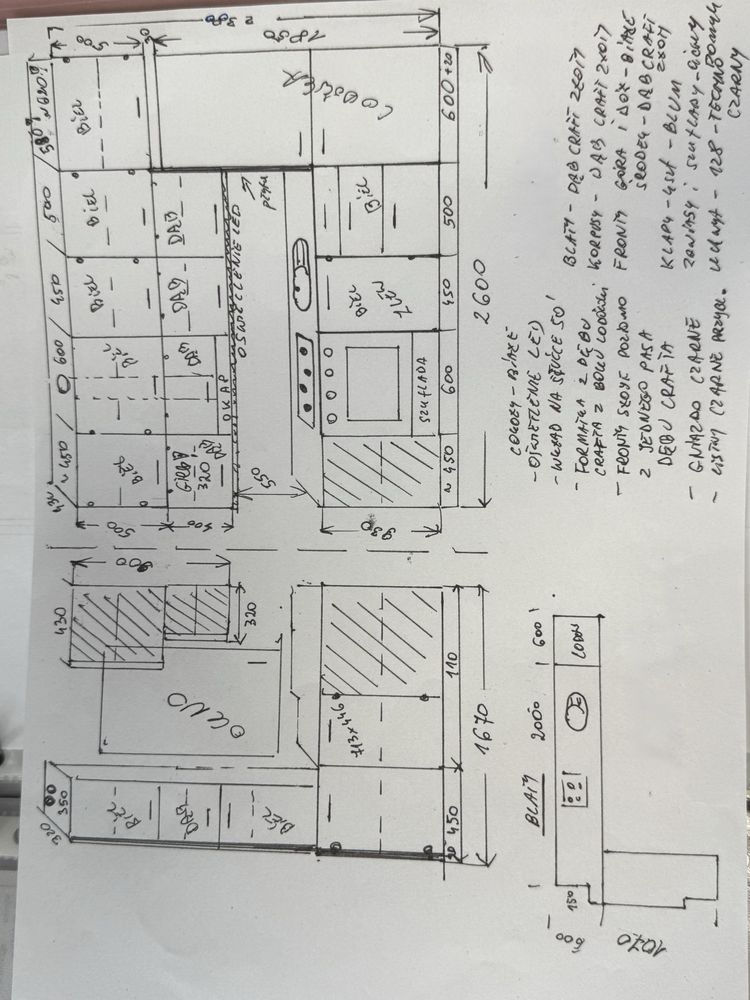 2390
1850
580
600+20
LODÓWKA
BIEL
500
BIEL
DĄB
BIEL
450
BIEL
DĄB
ZLEW
BIEL
600
BIEL
DĄB
OKAP
SZUFLADA
~ 450
BIEL
GŁĘB.
320
DĄB
~ 450
OŚWIETLENIE LED
2600
500
400
550
930
900
430
320
OKNO
110
713x446
1670
450
320
350
BIEL
DĄB
BIEL
BLATY - DĄB CRAFT ZŁOTY
KORPUSY - DĄB CRAFT ZŁOTY
FRONTY GÓRA I DÓŁ - BIAŁE
ŚRODEK - DĄB CRAFT
ZŁOTY
KLAPY - BLUM
ZAWIASY I SZUFLADY -
128 -
CZARNY
COKOŁY - BIAŁE
- OŚWIETLENIE LED
- WKŁAD NA SZTUĆCE 50'
- FORMATKA Z DĘBU
CRAFTA Z BOKU LODÓWKI
- FRONTY SŁOJE POZIOMO
Z JEDNEGO PASA
DĘBU CRAFTA
- GNIAZDO CZARNE
- LISTWY CZARNE PRZYBL.
BLATY
2000
600
LODÓW
150
600
1020